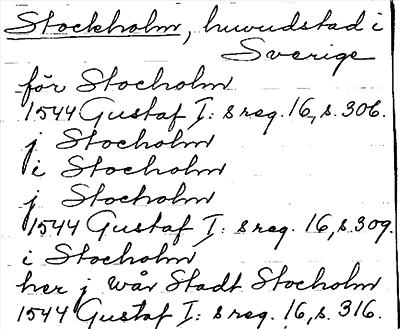 Stockholm, huvudstad i
Sverige
för Stocholm
1544 Gustaf I: s reg. 16, s. 306.
j Stocholm
i Stocholm
j Stocholm
1544 Gustaf I: s reg. 16, s. 309.
i Stocholm
her j wår Stadt Stocholm
1544 Gustaf I: s reg. 16, s. 316.